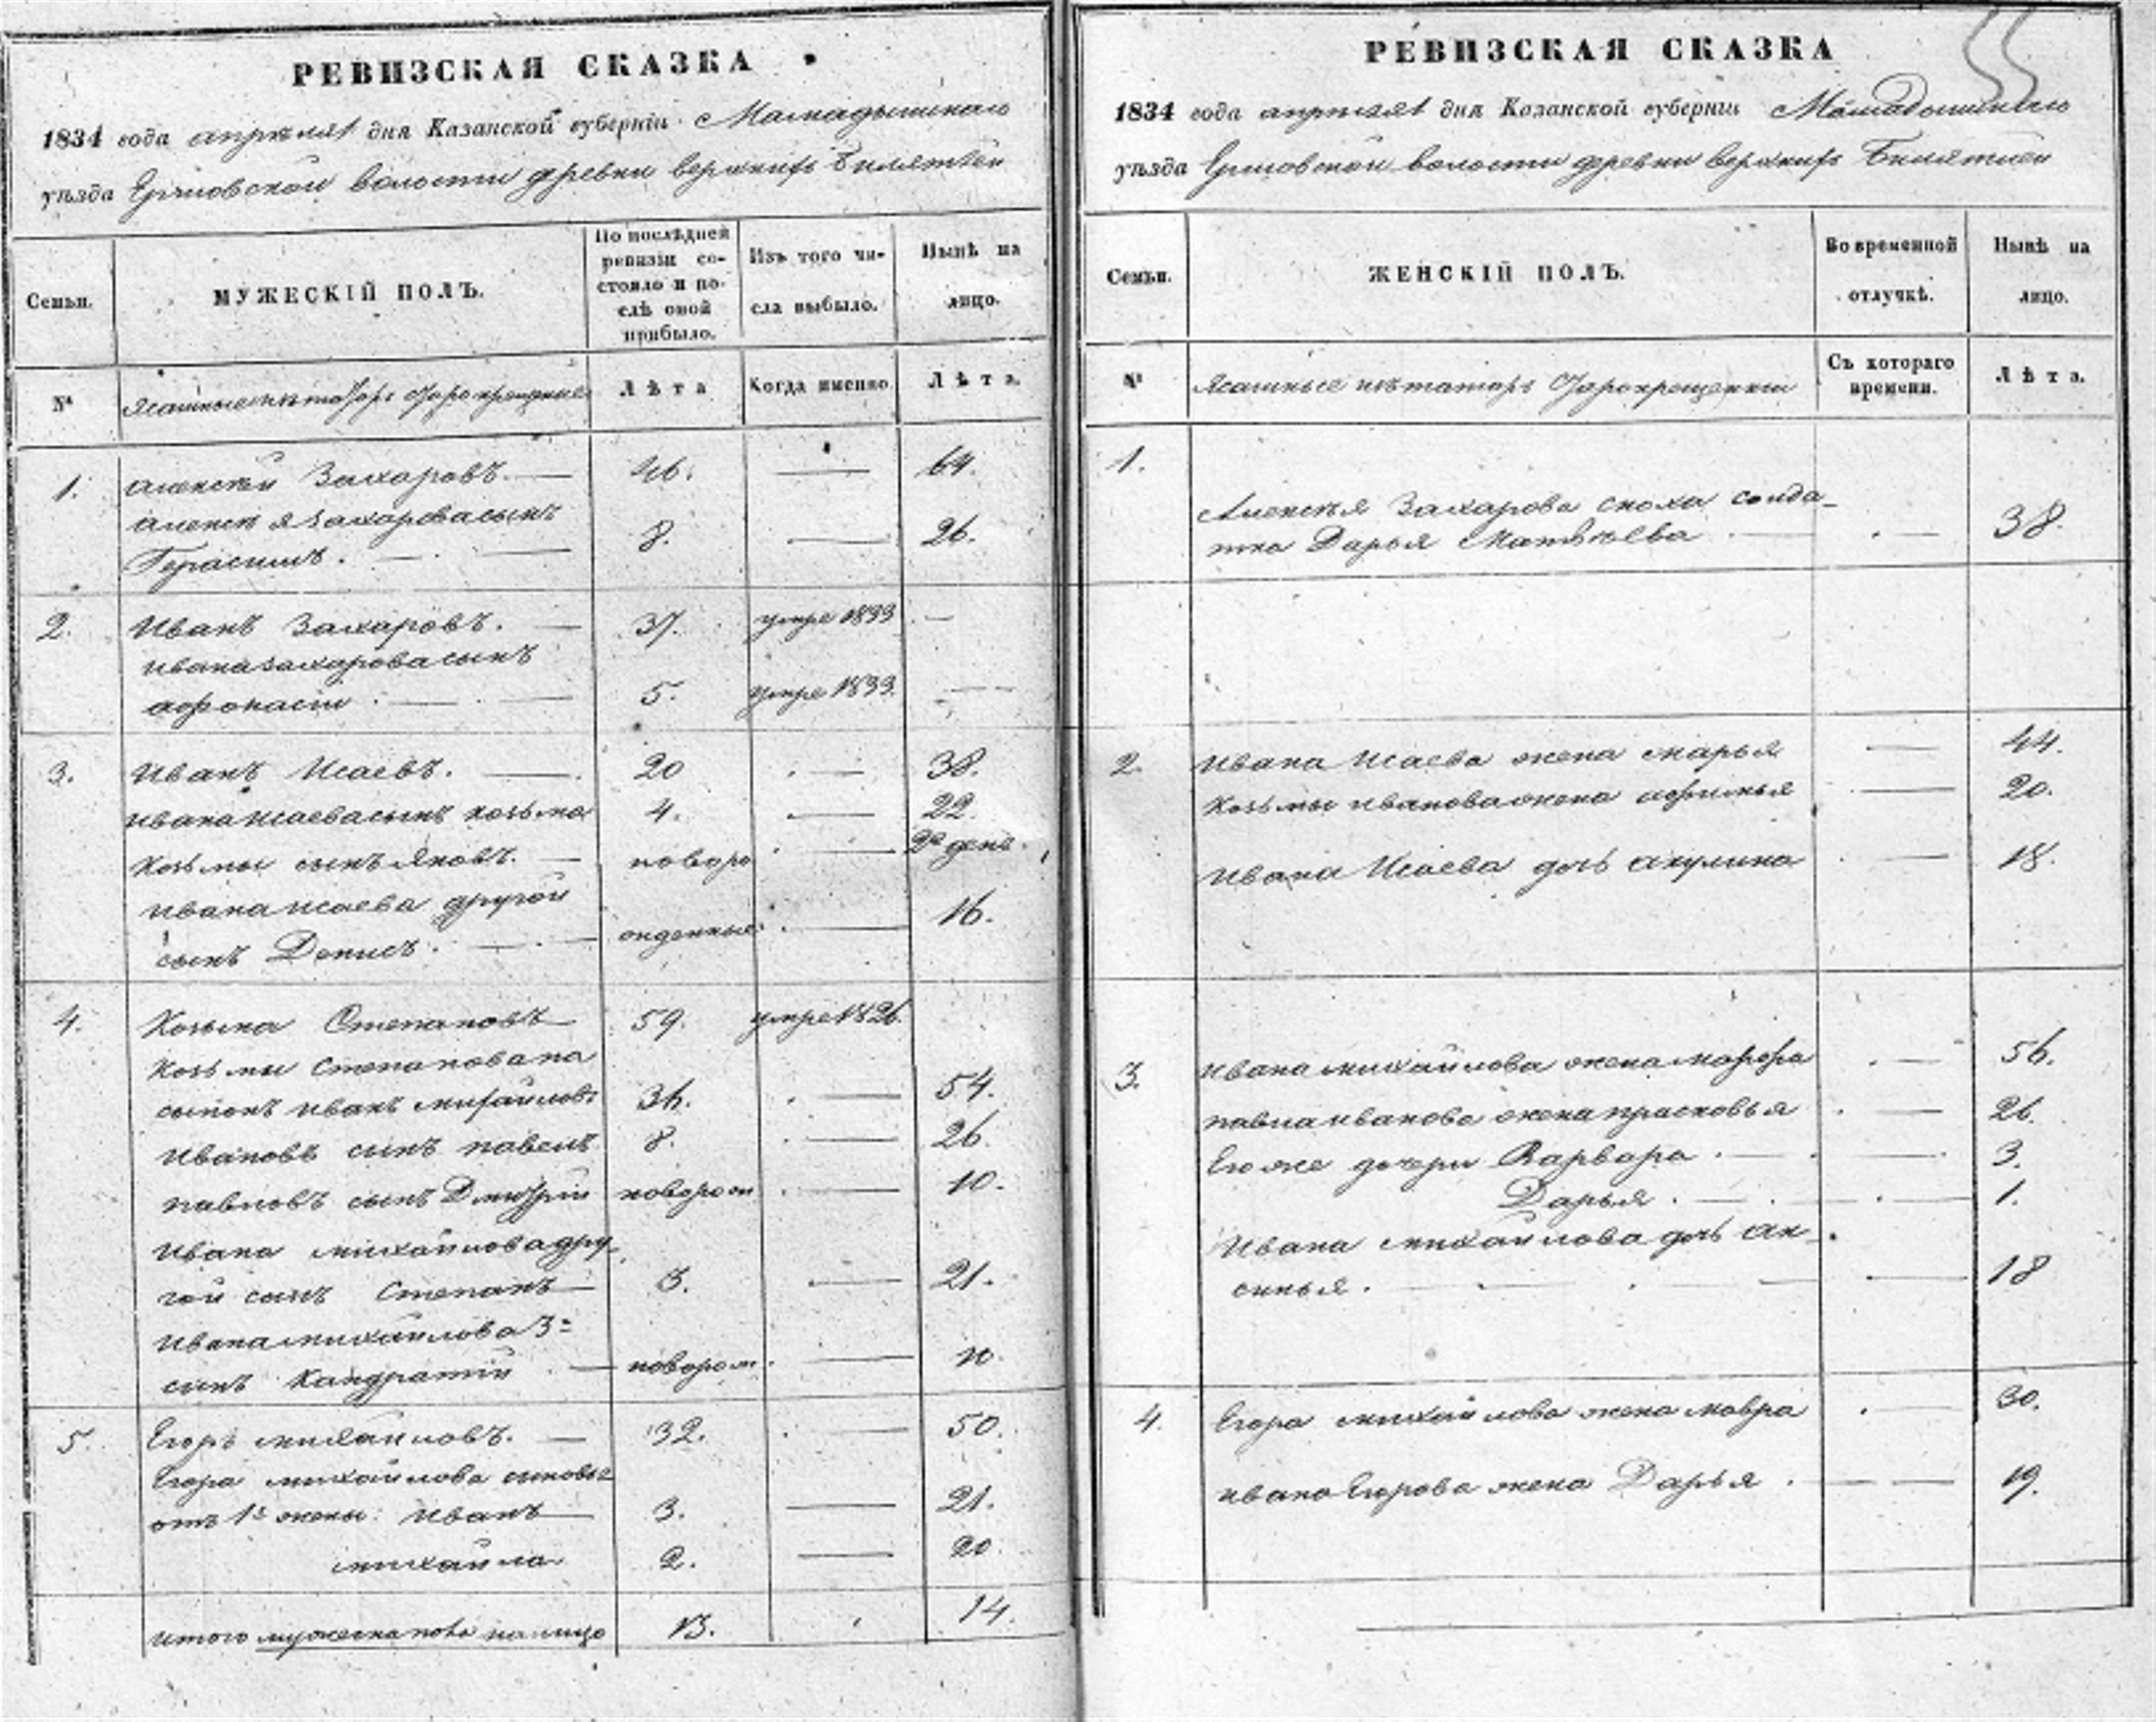 РЕВИЗСКАЯ СКАЗКА
1834 года апреля 1 дня Казанской губернiи Мамадышскаго
уѣзда волости деревни верхнихъ
Семьи.
МУЖЕСКIЙ ПОЛЪ.
По послѣдней
ревизiи со-
стояло и по-
слѣ оной
прибыло.
Изъ того чи-
сла выбыло.
Нынѣ на
лицо.
№
Ясашные изъ татаръ старокрещенные
Лѣта
Когда именно
Лѣта.
1. Алексѣй Захаровъ. 46. 64.
Алексѣя Захарова сынъ
Герасимъ. 8. 26.
2. Иванъ Захаровъ. 37. умре 1833
Ивана Захарова сынъ
Афонасiй 5. умре 1833.
3. Иванъ Исаевъ. 20 38.
Ивана Исаева сынъ Козьма 4. 22.
Козьмы сынъ Яковъ. новоро 2е ден.
Ивана Исаева другой
сынъ Денисъ. жденные 16.
4. Козьма Степановъ 59. умре 1826.
Козьмы Степанова па
сынокъ Иванъ Михайловъ 36. 54.
Ивановъ сынъ Павелъ 8. 26.
Павловъ сынъ Дмитрiй новорож 10.
Ивана Михайлова дру
гой сынъ Степанъ 3. 21.
Ивана Михайлова 3=
сынъ Кандратiй новорож. 10.
5. Егоръ Михайловъ. 32. 50.
Егора Михайлова сыновья
отъ 1й жены: Иванъ 3. 21.
Михайла 2. 20.
Итого мужеска пола на лицо 13. 14.
РЕВИЗСКАЯ СКАЗКА
1834 года апреля 1 дня Казанской губернiи Мамадышскаго
уѣзда волости деревни верхнихъ
Семьи.
ЖЕНСКIЙ ПОЛЪ.
Во временной
отлучкѣ.
Нынѣ на
лицо.
№
Ясашные изъ татаръ старокрещенныи
Съ котораго
времени.
Лѣта.
1.
Алексѣя Захарова сноха солда-
тка Дарья Матвѣева 38.
2. Ивана Исаева жена Марья 44.
Козьмы Иванова жена Афимья 20.
Ивана Исаева дочь Акулина 18.
3. Ивана Михайлова жена Марфа 56.
Павла Иванова жена Прасковья 26.
Его же дочери Варвара 3.
Дарья 1.
Ивана Михайлова дочь Ак-
синья. 18
4. Егора Михайлова жена Мавра 30.
Ивана Егорова жена Дарья 19.